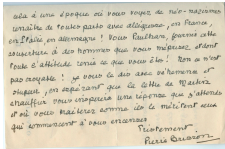 cela à une époque où vous voyez le néo-nazisme
renaître de toutes parts avec allégresse, en France,
en Italie, en Allemagne ! Vous Paulhan, fournir cette
couverture à des hommes que vous méprisez et dont
toute l'attitude renie ce que vous êtes ! Non ce n'est
pas croyable ! je vous le dis avec véhémence et
stupeur, en espérant que la lettre de Martin
Chauffier vous inspirera une réponse que j'attends
et où vous traiterez comme ils le méritent ceux
qui commencent à vous encenser
Tristement
Pierre